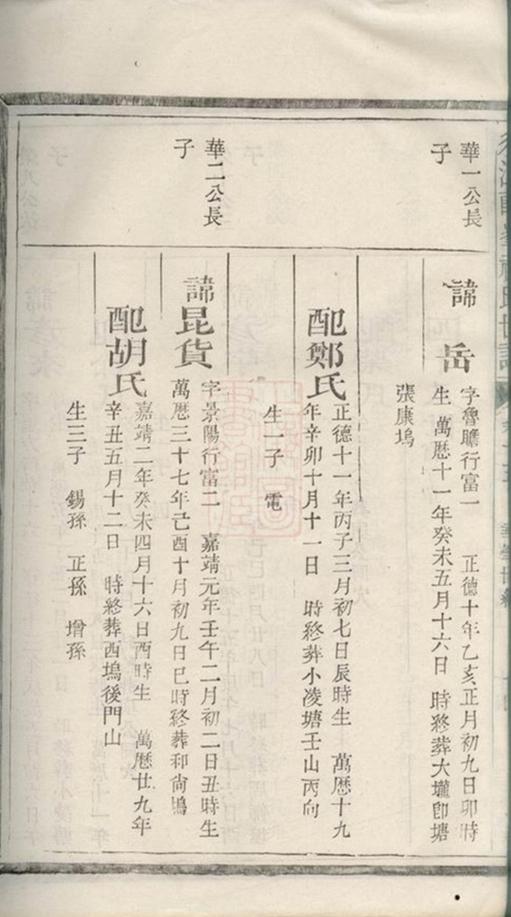 華一公長
子
諱 岳
字魯瞻行富一 正德十年乙亥正月初九日卯時
生 萬曆十一年癸未五月十六日 時終葬大壠卽塘
張康塢
配鄭氏
正德十一年丙子三月初七日辰時生 萬曆十九
年辛卯十月十一日 時終葬小凌塘壬山丙向
生一子 電
華二公長
子
諱昆貨
字景陽行富二 嘉靖元年壬午二月初二日丑時生
萬曆三十七年己酉十月初九日巳時終葬和尚塢
配胡氏
嘉靖二年癸未四月十六日酉時生 萬曆廿九年
辛丑五月十二日 時終葬西塢後門山
生三子 錫孫 正孫 增孫